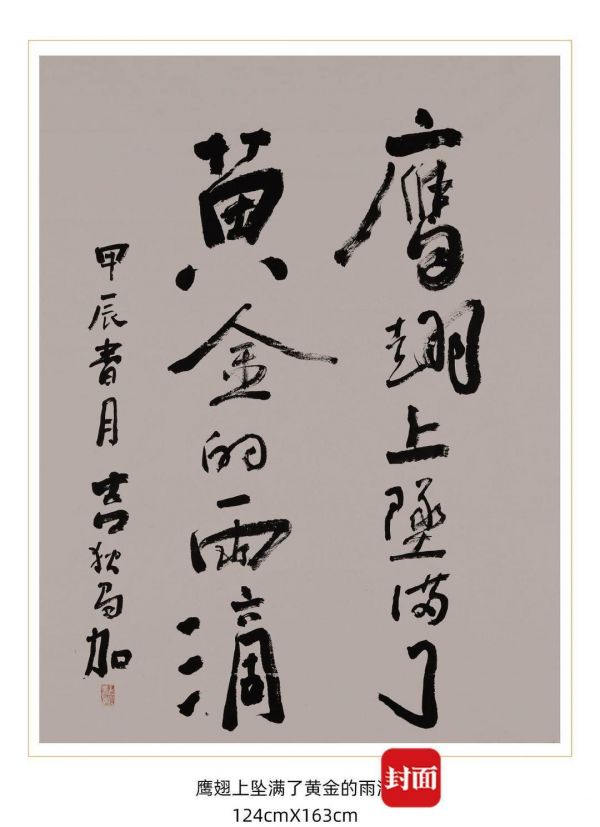 鹰翅上墜满了
黄金的雨滴
甲辰春月 吉狄马加
鹰翅上坠满了黄金的雨
封面
124cmX163cm